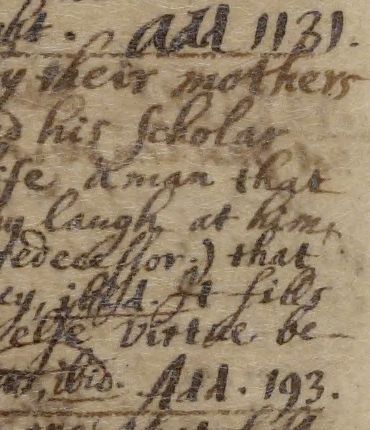 ht. Add 1131.
y their mothers
d his scholar
ise, a man that
by laugh, at him,
redecessor.) that
ey, ibid. It fills
else Virtue be-
ibid. Add. 193.